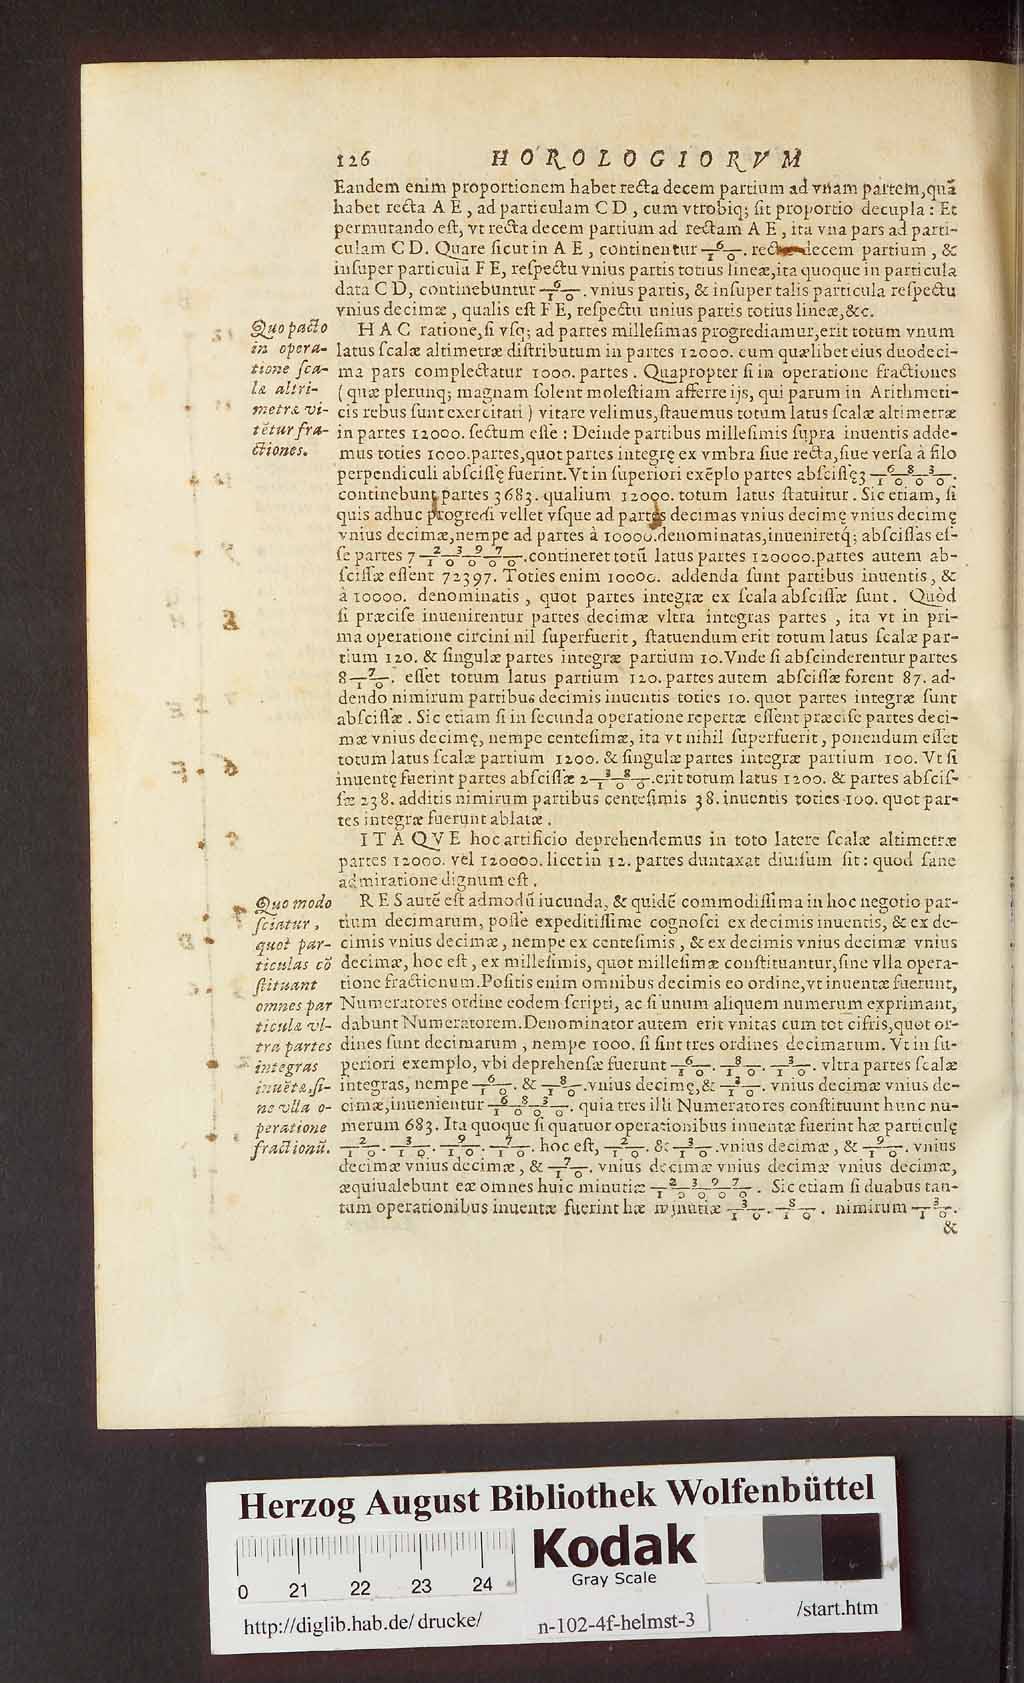 126 HOROLOGIORVM
Eandem enim proportionem habet recta decem partium ad vnam partem, quā
habet recta A E, ad particulam C D, cum vtrobiq; ſit proportio decupla: Et
permutando eſt, vt recta decem partium ad rectam A E, ita vna pars ad parti-
culam C D. Quare ſicut in A E, continentur 6/10. rectæ decem partium, &
inſuper particula F E, reſpectu vnius partis totius lineæ, ita quoque in particula
data C D, continebuntur 6/10. vnius partis, & inſuper talis particula reſpectu
vnius decimæ, qualis eſt F E, reſpectu unius partis totius lineæ, &c.
Quo pacto
in opera-
tione ſca-
læ altri-
metræ vi-
tētur fra-
ctiones.
HAC ratione, ſi vſq; ad partes milleſimas progrediamur, erit totum vnum
latus ſcalæ altimetræ diſtributum in partes 12000. cum quælibet eius duodeci-
ma pars complectatur 1000. partes. Quapropter ſi in operatione fractiones
(quæ plerunq; magnam ſolent moleſtiam afferre ijs, qui parum in Arithmeti-
cis rebus ſunt exercitati) vitare velimus, ſtauemus totum latus ſcalæ altimetræ
in partes 12000. ſectum eſſe: Deinde partibus milleſimis ſupra inuentis adde-
mus toties 1000. partes, quot partes integrę ex vmbra ſiue recta, ſiue verſa à filo
perpendiculi abſciſſę fuerint. Vt in ſuperiori exēplo partes abſciſſę 3 683/1000.
continebunt partes 3683. qualium 12000. totum latus ſtatuitur. Sic etiam, ſi
quis adhuc progredi vellet vſque ad partes decimas vnius decimę vnius decimę
vnius decimæ, nempe ad partes à 10000. denominatas, inueniretq́; abſciſſas eſ-
ſe partes 7 2397/10000. contineret totū latus partes 120000. partes autem ab-
ſciſſæ eſſent 72397. Toties enim 10000. addenda ſunt partibus inuentis, &
à 10000. denominatis, quot partes integræ ex ſcala abſciſſæ ſunt. Quòd
ſi præciſe inuenirentur partes decimæ vltra integras partes, ita vt in pri-
ma operatione circini nil ſuperfuerit, ſtatuendum erit totum latus ſcalæ par-
tium 120. & ſingulæ partes integræ partium 10. Vnde ſi abſcinderentur partes
8 7/10. eſſet totum latus partium 120. partes autem abſciſſæ forent 87. ad-
dendo nimirum partibus decimis inuentis toties 10. quot partes integræ ſunt
abſciſſæ. Sic etiam ſi in ſecunda operatione repertæ eſſent præciſe partes deci-
mæ vnius decimę, nempe centeſimæ, ita vt nihil ſuperfuerit, ponendum eſſet
totum latus ſcalæ partium 1200. & ſingulæ partes integræ partium 100. Vt ſi
inuentę fuerint partes abſciſſæ 2 38/100. erit totum latus 1200. & partes abſciſ-
ſæ 238. additis nimirum partibus centeſimis 38. inuentis toties 100. quot par-
tes integræ fuerunt ablatæ.
ITAQVE hoc artificio deprehendemus in toto latere ſcalæ altimetræ
partes 12000. vel 120000. licet in 12. partes duntaxat diuiſum ſit: quod ſane
admiratione dignum eſt.
Quo modo
ſciatur,
quot par-
ticulas cō
ſtituant
omnes par
ticulæ vl-
tra partes
integras
inuētæ, ſi-
ne vlla o-
peratione
fractionū.
RES autē eſt admodū iucunda, & quidē commodiſſima in hoc negotio par-
tium decimarum, poſſe expeditiſſime cognoſci ex decimis inuentis, & ex de-
cimis vnius decimæ, nempe ex centeſimis, & ex decimis vnius decimæ vnius
decimæ, hoc eſt, ex milleſimis, quot milleſimæ conſtituantur, ſine vlla opera-
tione fractionum. Poſitis enim omnibus decimis eo ordine, vt inuentæ fuerunt,
Numeratores ordine eodem ſcripti, ac ſi unum aliquem numerum exprimant,
dabunt Numeratorem. Denominator autem erit vnitas cum tot cifris, quot or-
dines ſunt decimarum, nempe 1000. ſi ſint tres ordines decimarum. Vt in ſu-
periori exemplo, vbi deprehenſæ fuerunt 6/10. 8/10. 3/10. vltra partes ſcalæ
integras, nempe 6/10. & 8/10. vnius decimę, & 3/10. vnius decimæ vnius de-
cimæ, inuenientur 683/1000. quia tres illi Numeratores conſtituunt hunc nu-
merum 683. Ita quoque ſi quatuor operationibus inuentæ fuerint hæ particulę
2/10. 3/10. 9/10. 7/10. hoc eſt, 2/10. & 3/10. vnius decimæ, & 9/10. vnius
decimæ vnius decimæ, & 7/10. vnius decimæ vnius decimæ vnius decimæ,
æquiualebunt eæ omnes huic minutiæ 2397/10000. Sic etiam ſi duabus tan-
tum operationibus inuentæ fuerint hæ minutiæ 3/10. 8/10. nimirum 3/10.
&
Herzog August Bibliothek Wolfenbüttel
Kodak
Gray Scale
0 21 22 23 24
http://diglib.hab.de/drucke/ n-102-4f-helmst-3 /start.htm